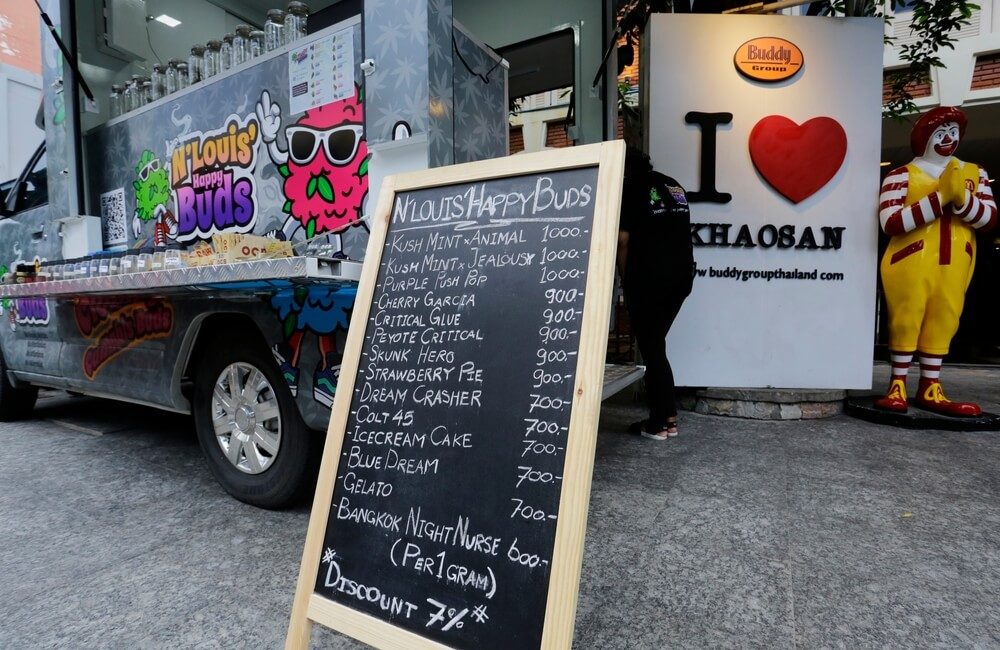 N'LOUIS'
Happy
BUDS
N'LOUIS HAPPY BUDS
-KUSH MINT x ANIMAL 1000.-
-KUSH MINT x JEALOUSY 1000.-
-PURPLE PUSH POP 1000.-
-CHERRY GARCIA 900.-
-CRITICAL GLUE 900.-
-PEYOTE CRITICAL 900.-
-SKUNK HERO 900.-
-STRAWBERRY PIE 900.-
-DREAM CRASHER 700.-
-COLT 45 700.-
-ICECREAM CAKE 700.-
-BLUE DREAM 700.-
-GELATO 700.-
-BANGKOK NIGHT NURSE 600.-
(PER 1 GRAM)
# DISCOUNT 7% #
Buddy
Group
I
KHAOSAN
www.buddygroupthailand.com